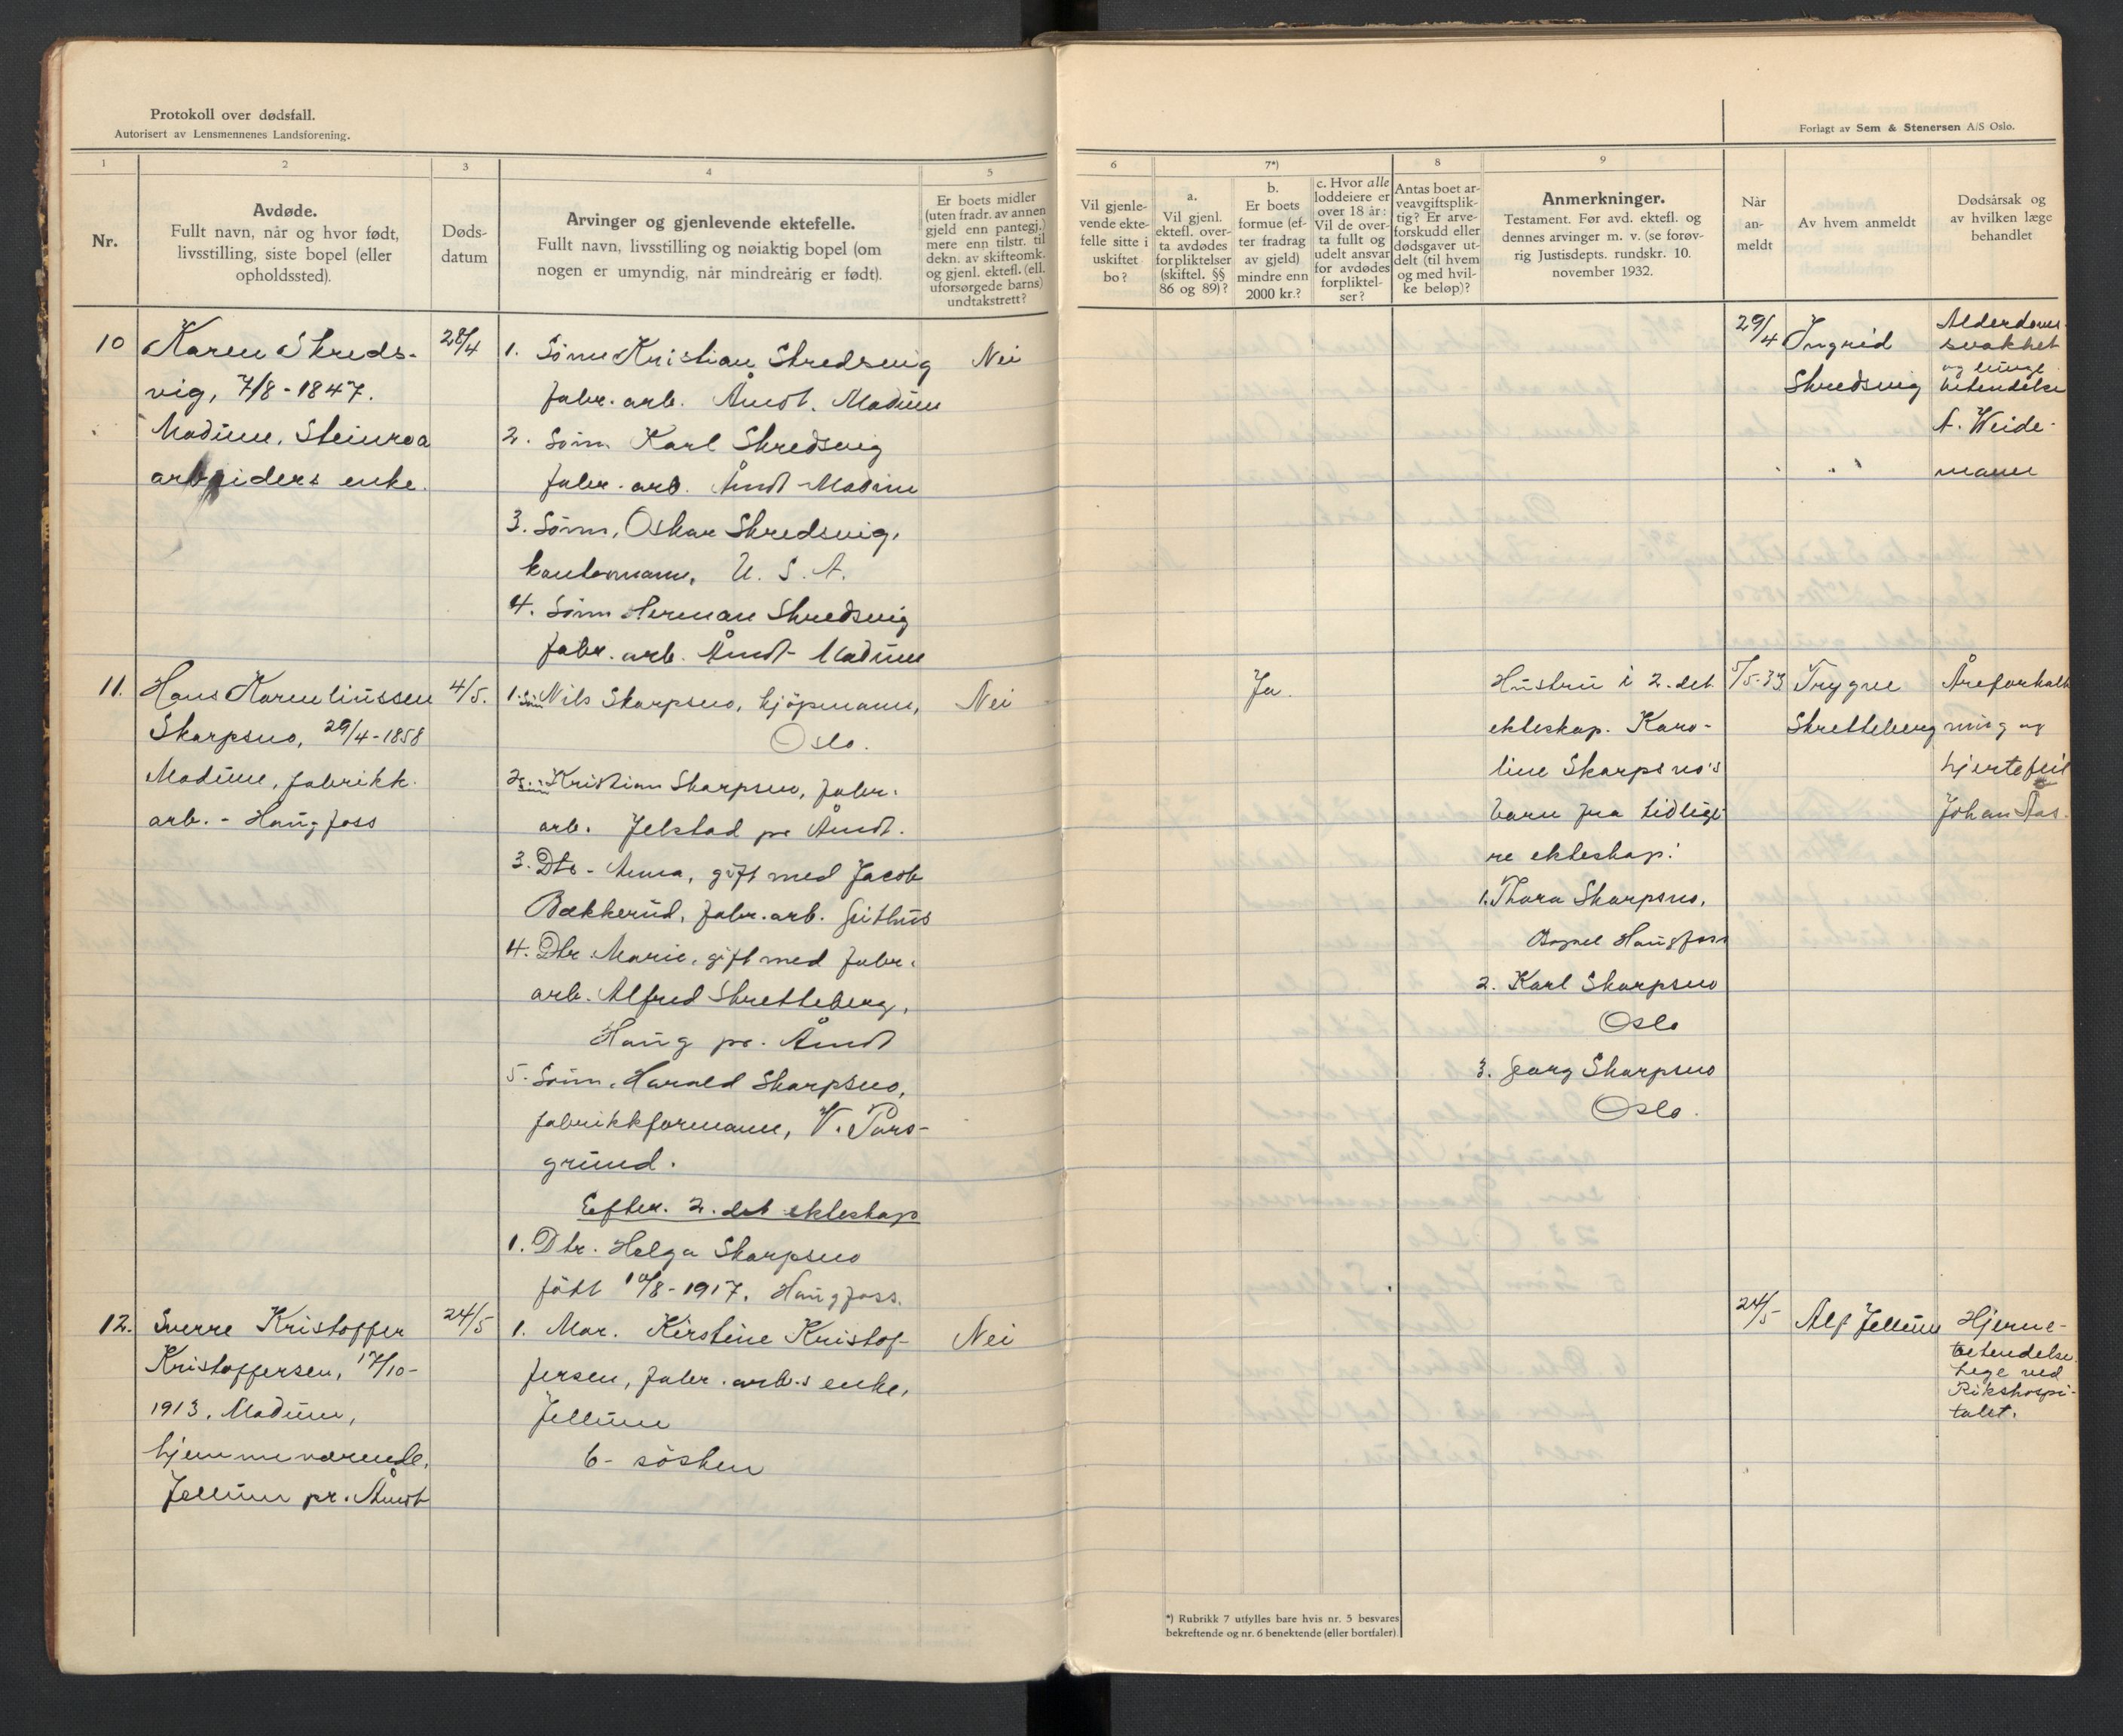 Protokoll over dødsfall.
Autorisert av Lensmennenes Landsforening.
1
2
3
4
5
Nr.
Avdøde.
Fullt navn, når og hvor født,
livsstilling, siste bopel (eller
opholdssted).
Døds-
datum
Arvinger og gjenlevende ektefelle.
Fullt navn, livsstilling og nøiaktig bopel (om
nogen er umyndig, når mindreårig er født).
Er boets midler
(uten fradr. av annen
gjeld enn pantegj.)
mere enn tilstr. til
dekn. av skifteomk.
og gjenl. ektefl. (ell.
uforsørgede barns)
undtakstrett?
10
Karen Skreds-
vig, 7/8-1847.
Modum, Steinroa
arbeiders enke.
28/4
1. Sönn Kristian Skredsvig
fabr. arb. Åmot. Modum
2. Sönn Karl Skredsvig
fabr. arb. Åmot-Modum
3. Sönn, Oskar Skredsvig,
kontormann, U. S. A.
4. Sönn Herman Skredsvig
fabr. arb. Åmot-Modum
Nei
11.
Hans Karenliussen
Skarpsno, 29/4-1858
Modum, fabrikk.
arb. - Haugfoss
4/5.
1. Sönn Nils Skarpsno, kjöpmann,
Oslo.
2. Sönn Kristian Skarpsno, fabr.
arb. Jelstad pr Åmot.
3. Dtr - Anna, gift med Jacob
Bakkerud, fabr. arb. Geithus
4. Dtr Marie, gift med fabr.
arb. Alfred Skretteberg,
Haug pr. Åmot
5. Sönn, Harald Skarpsno,
fabrikkformann, V. Pors-
grund.
Efter. 2. det ekteskap
1. Dtr. Helga Skarpsno
född 10/8-1917. Haugfoss.
Nei
12.
Sverre Kristoffer
Kristoffersen, 17/10-
1913, Modum,
hjemmeværende.
Jellum pr. Åmot
24/5
1. Mor. Kirstine Kristof-
fersen, fabr. arb.s enke,
Jellum
6- sösken
Nei
Forlagt av Sem & Stenersen A/S Oslo.
6
7*)
8
9
Vil gjenle-
vende ekte-
felle sitte i
uskiftet
bo?
a.
Vil gjenl.
ektefl. over-
ta avdødes
forpliktelser
(skiftel. §§
86 og 89)?
b.
Er boets
formue (ef-
ter fradrag
av gjeld)
mindre enn
2000 kr.?
c. Hvor alle
loddeiere er
over 18 år:
Vil de over-
ta fullt og
udelt ansvar
for avdødes
forpliktel-
ser?
Antas boet ar-
veavgiftsplik-
tig? Er arve-
forskudd eller
dødsgaver ut-
delt (til hvem
og med hvil-
ke beløp)?
Anmerkninger.
Testament. Før avd. ektefl. og
dennes arvinger m. v. (se forøv-
rig Justisdepts. rundskr. 10.
november 1932.
Når
an-
meldt
Av hvem anmeldt
Dødsårsak og
av hvilken læge
behandlet
29/4
Ingrid
Skredsvig
Alderdoms-
svakhet
og lunge
betendelse
A. Weide-
mann
Ja.
Hustru i 2. det
ekteskap. Karo-
line Skarpsno's
barn fra tidlige-
re ekteskap:
1. Thora Skarpsno,
Bopel Haugfoss
2. Karl Skarpsno
Oslo
3. Georg Skarpsno
Oslo.
5/5-33
Trygve
Skretteberg
Åreforkalk-
ning og
hjertefeil
Johan Aas.
24/5
Alf Jellum
Hjerne-
betendelse.
Lege ved
Rikshospi-
talet.
*) Rubrikk 7 utfylles bare hvis nr. 5 besvares
bekreftende og nr. 6 benektende (eller bortfaler)